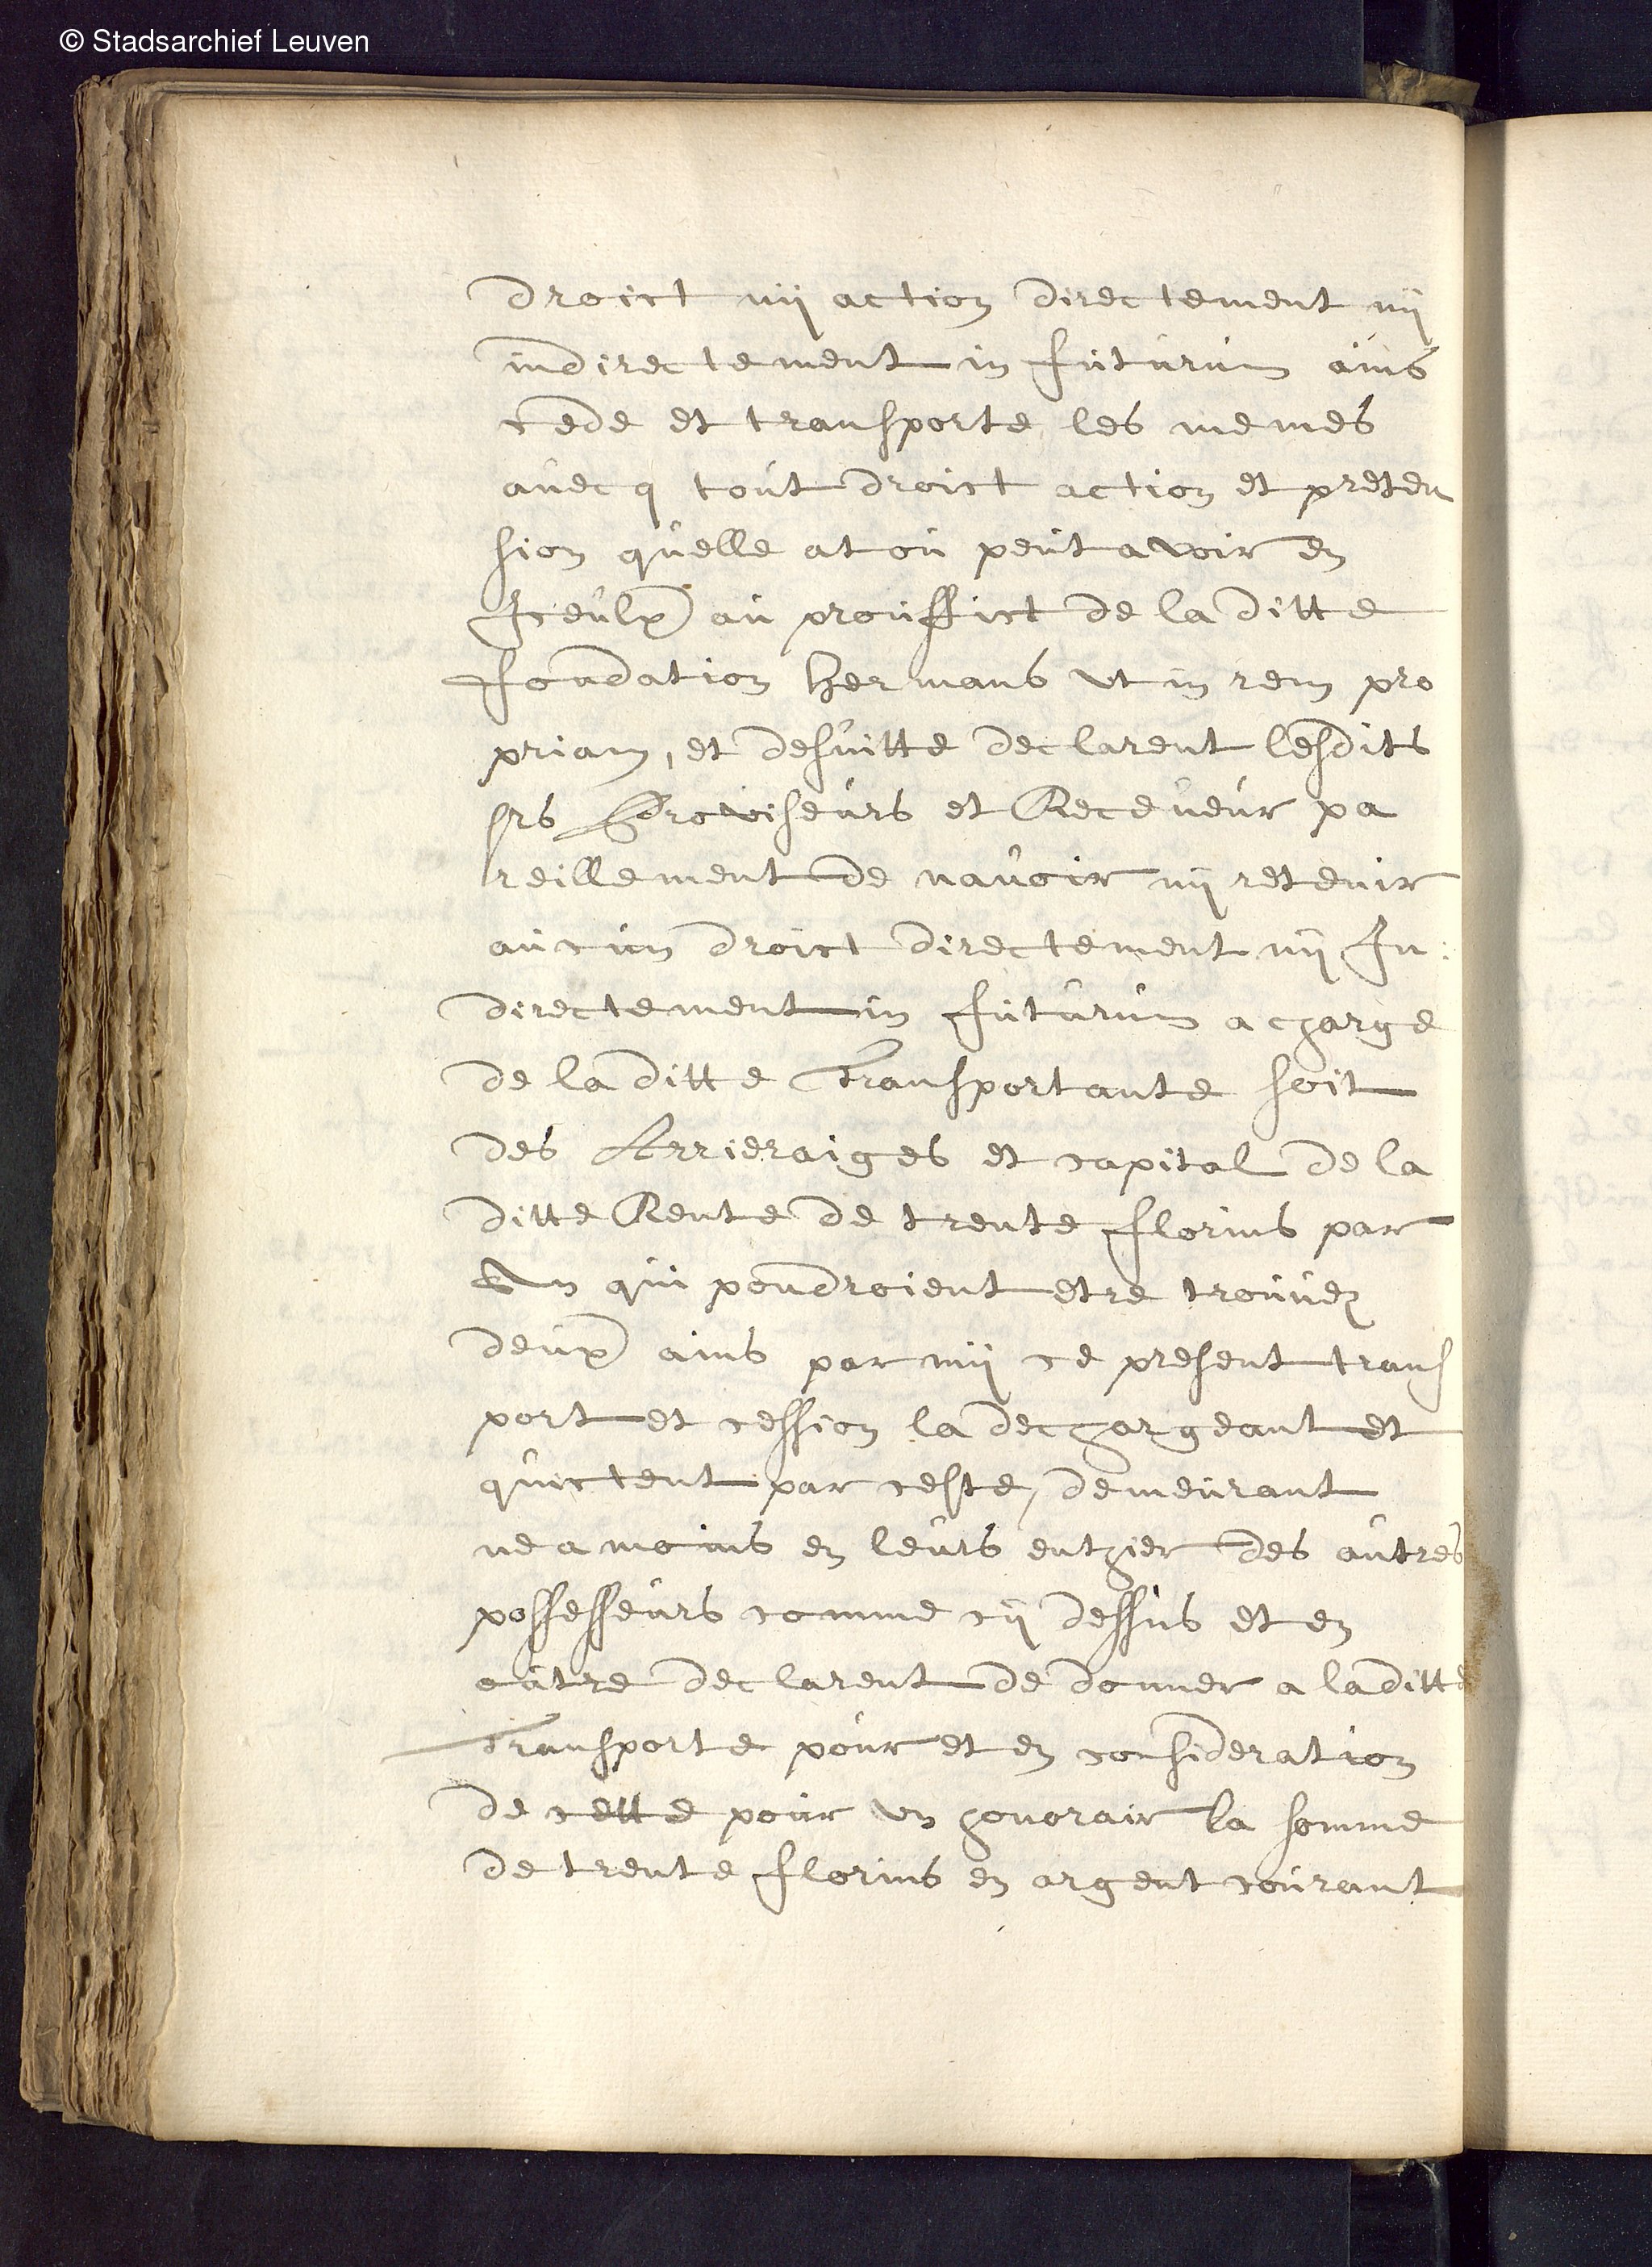 © Stadsarchief Leuven
droict nij action directement nij
indirectement in futurum ains
cede et transporte les memes
avecq tout droict action et preten
sion quelle at ou peut avoir en
Iceulx au prouffict de la ditte
fondation hermans ut in rem pro
priam, et desuitte declarent lesdits
srs Proviseurs et Receveur pa
reillement de navoir nij retenir
aucun droict directement nij In:
directement in futurum a charge
de la ditte Transportante soit
des Arrieraiges et capital de la
ditte Rente de trente florins par
An qui poudroient etre trouvez
deux ains parmij ce present trans
port et cession la dechargeant et
quictent par ceste, demeurant
neamoins en leurs enthier des autres
possesseurs comme cij dessus et en
outre declarent de donner a laditte
Transporte pour et en consideration
de cette pour un honorair la somme
de trente florins en argent courant